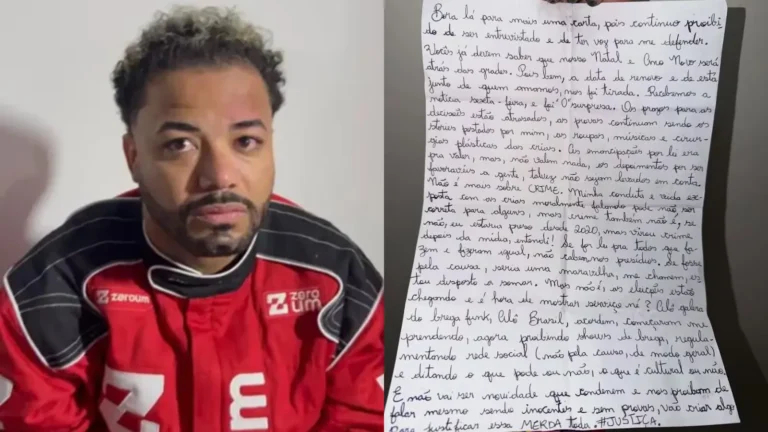 zeroum
ZERO
UM
Z
m
Bora lá para mais uma carta, pois continuo proibi
do de ser entrevistado e de ter voz para me defender.
Vocês já devem saber que nosso Natal e Ano Novo será
atrás das grades. Pois bem, a data de renovo e de está
junto de quem amamos, nos foi tirada. Recebemos a
notícia sexta-feira, e foi "0" surpresa. Os prazos para as
decisões estão atrasados, as provas continuam sendo os
stories postados por mim, as roupas, músicas e cirur-
gias plásticas das crias. As emancipações por lei era
pra valer, mas, não valem nada, os depoimentos por ser
favoráveis a gente, talvez não sejam levados em conta.
Não é mais sobre CRIME. Minha conduta e vida ex-
posta com as crias moralmente falando pode não ser
correta para alguns, mas crime também não é, se
não, eu estaria preso desde 2020, mas virou crime
depois da mídia, entendi! Se for lei pra todos que fa-
zem e fizeram igual, não caberia nos presídios. Se fosse
pela causa, seria uma maravilha, me chamem, es
tou disposto a somar. Mas não é! as eleições estão
chegando e é hora de mostrar serviço né? Alô galera
do brega funk, Alô Brasil, acordem, começaram me
prendendo, agora proibindo shows de brega, regula-
mentando rede social (não pela causa, de modo geral)
e ditando o que pode ou não, o que é cultural ou não.
E não vai ser novidade que condenem e nos proibam de
falar mesmo sendo inocentes e sem provas, vão criar algo
Para justificar essa MERDA toda. #JUSTIÇA.